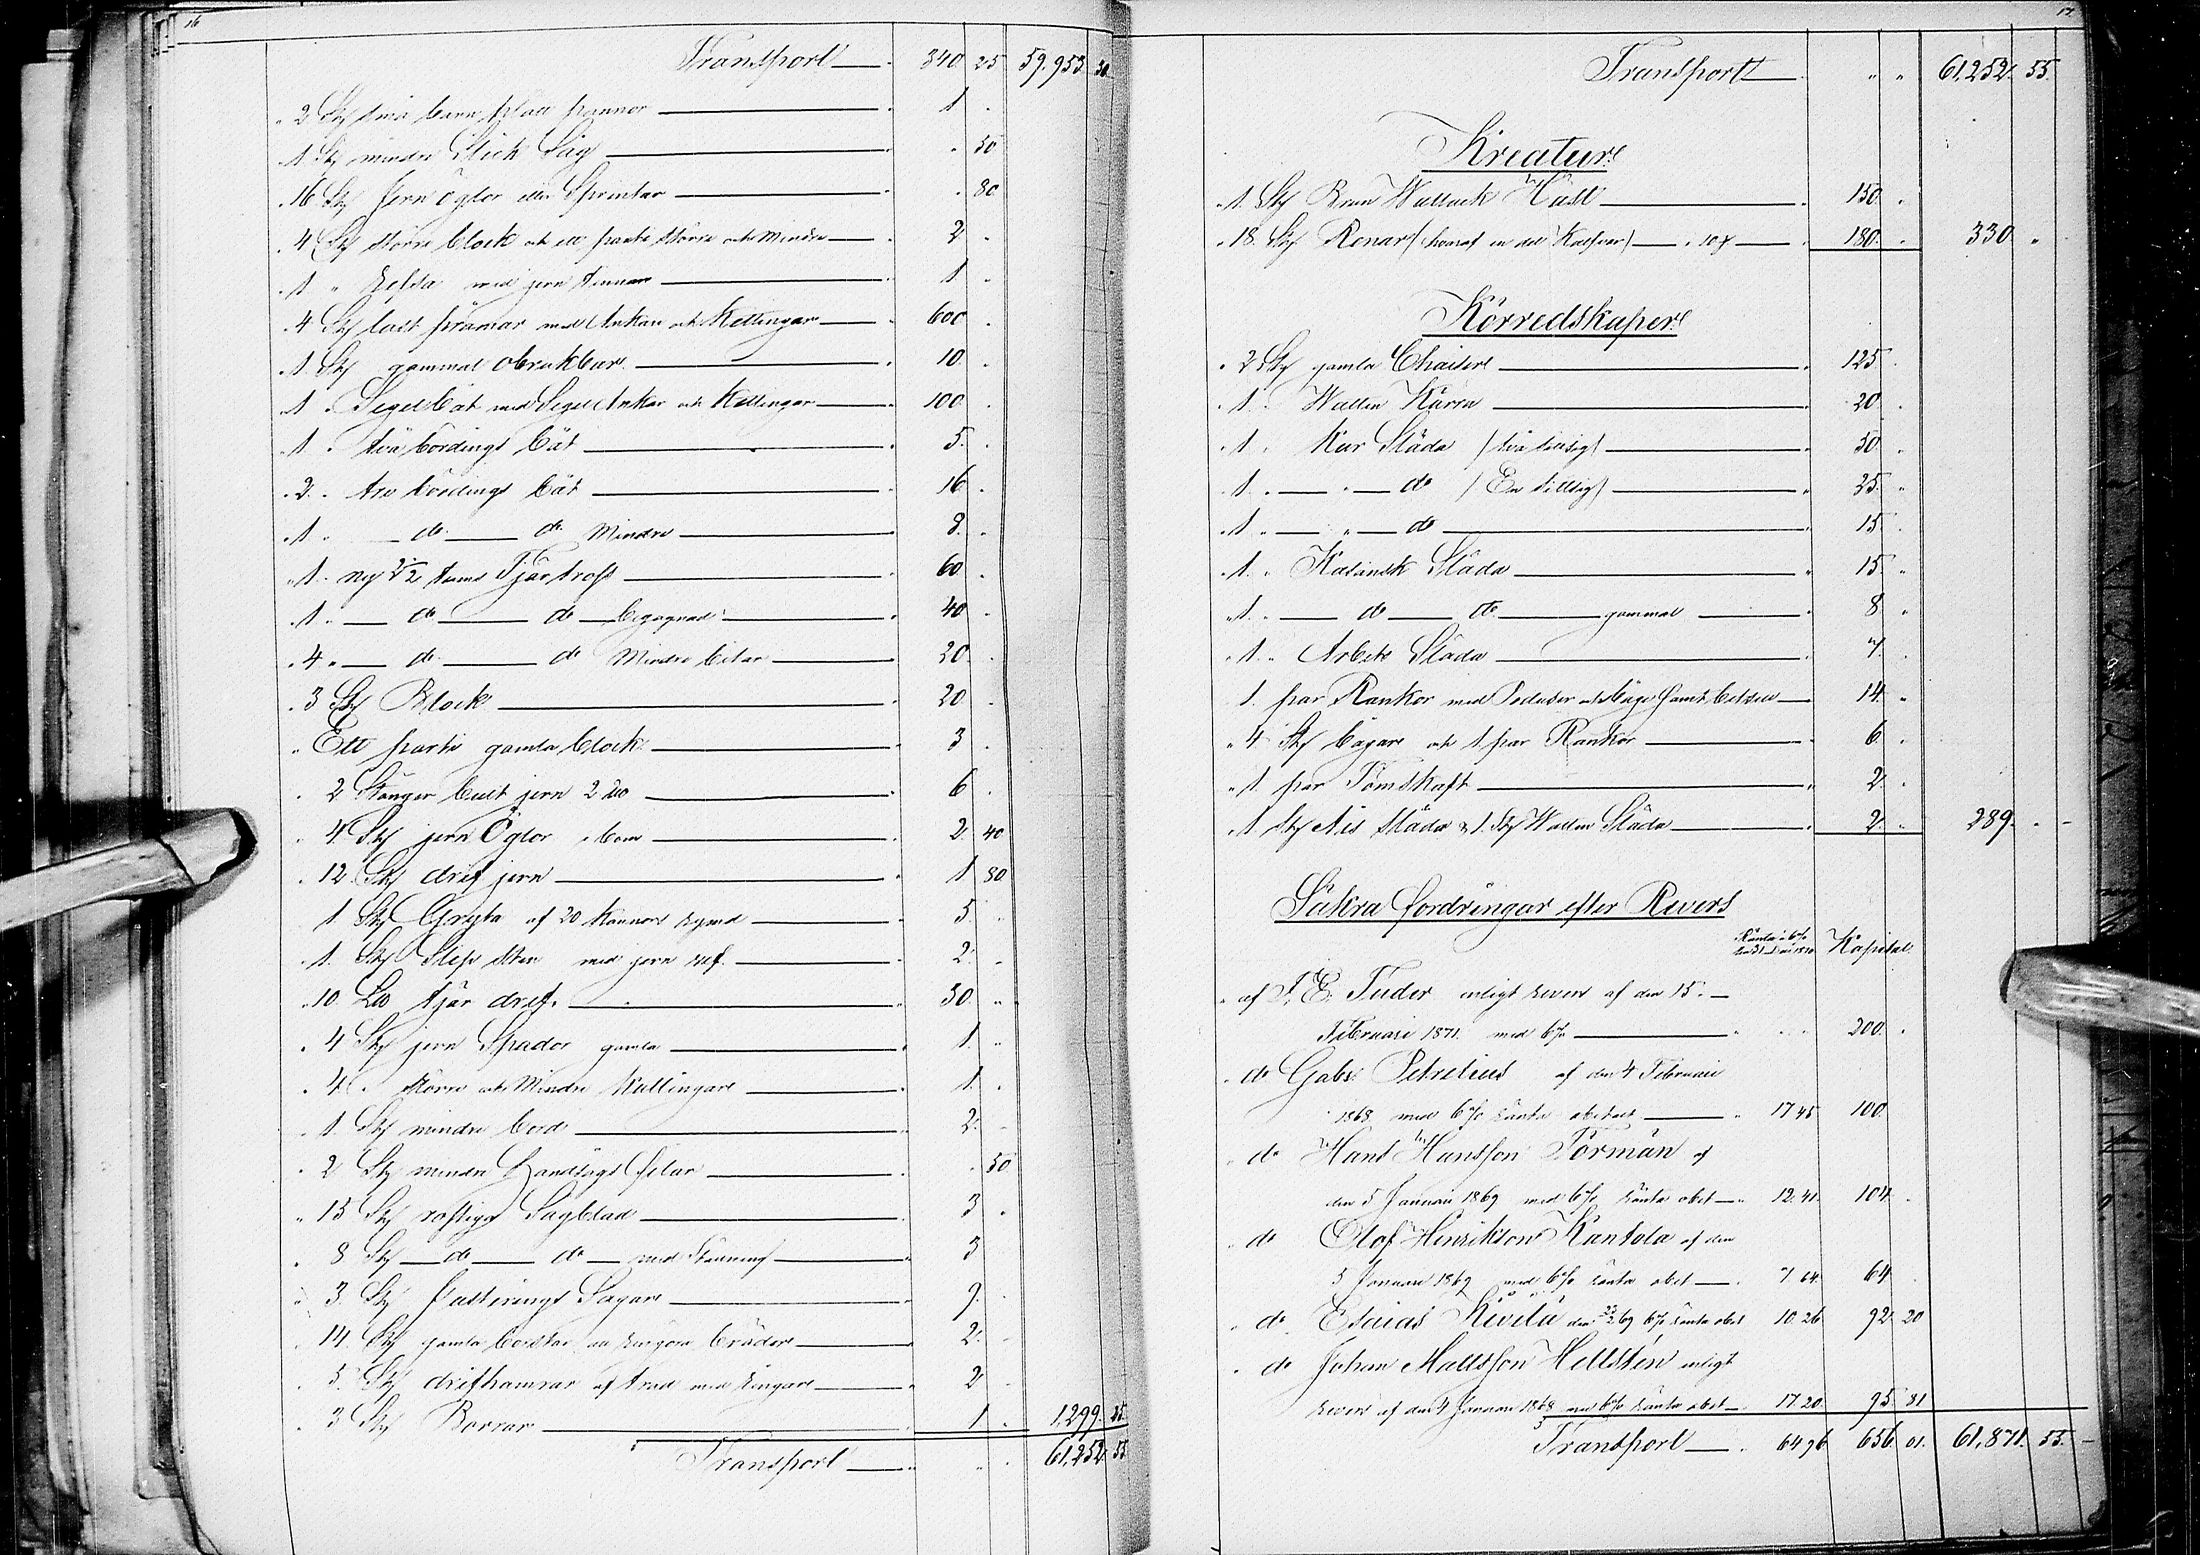 16
Transport 340 25 59,953 30
2 Stf små barn plått pannor 1
1 Stf mindre Stick Såg 50
16 Stf Jern öglor eller Sprintar 80
4 Stf större block och ett parti större och Mindre 2
1 " med jern 1
4 Stf last pråmar med Ankar och Kettingar 600
1 Stf gammal obrukbar 10
1 " Segelbåt med Segel Ankar och Kettingar 100
1 " två bördings båt 5
2 " tre bördings båt 16
1 " do do Mindre 8
1 ny 2 1/2 tums Tjärtross 60
1 " do do begagnad 40
4 " do do Mindre bitar 20
3 Stf Block 20
Ett parti gamla block 3
2 Stänger bult jern 2 6
4 Stf jern Öglor 2 40
12 Stf dref jern 1 80
1 Stf Gryta af 20 Kannors rymd 5
1 Stf Slip Sten med jern vef 2
10 tjär dref 50
4 Stf jern Spador gamla 1
4 " större och Mindre Kättingar 1
1 Stf mindre bord 2
2 Stf mindre Handsågs filar 50
15 Stf rostiga Sågblad 3
8 Stf do do med 3
3 Stf Justerings Sågar 9
14 Stf gamla borstar 2
5 Stf drifhamrar af träd med ringar 2
3 Stf Borrar 1 1,299 25
Transport " " 61,252 55
17
Transport " " 61,252 55
Kreatur
1 Stf Brun Wallack Häst 150
18 Stf Renar (hvaraf en del Kalfvar) 10 180 330
Körredskaper
2 Stf gamla Chaiser 125
1 " Watten Kärra 20
1 " Kur Släda (två sitsig) 50
1 " " do (En sittsig) 25
1 " " do 15
1 " Kasansk Släda 15
1 " do do gammal 8
1 " Arbets Släda 7
1 par Rankor med och Båge samt betsel 14
4 Stf bågar och 1 par Rankor 6
1 par Tömskaft 2
1 Stf Ris släda & 1 Stf Watten Släda 2 289
Säkra fordringar efter Revers
Ränta à 6% Kapital
af J. E. Tuder enligt revers af den 15
Februari 1871 med 6% 200
do Gabr Petrelius af den 4 Februari
1868 med 6% ränta obetalt 17 45 100
do Hans Hansson Törmän af
den 5 Januari 1869 med 6% ränta obet 12 41 104
do Olof Henrikson Kantola af den
5 Januari 1869 med 6% ränta obet 7 64 64
do Esaias Kivelä den 23/2 69 6% ränta obet 10 26 92 20
do Johan Mattsson Hellstén enligt
revers af den 4 Januari 1868 med 6% ränta obet 17 20 95 81
Transport 64 96 656 01 61,871 55